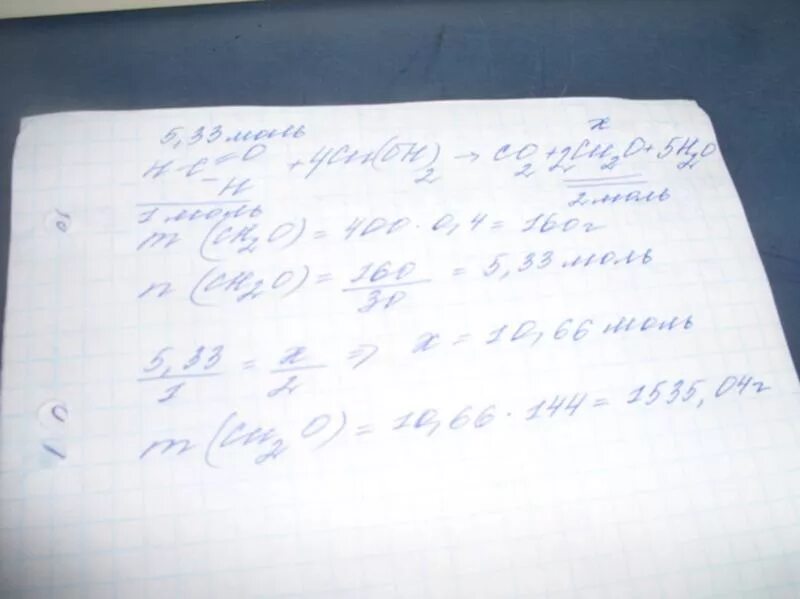 5,33 моль x
H-C=O + 4Cu(OH)2 → CO2 + 2Cu2O + 5H2O
-H
1 моль 2 моль
m (CH2O) = 400 · 0,4 = 160г
n (CH2O) = 160/30 = 5,33 моль
5,33/1 = x/2 => x = 10,66 моль
m (Cu2O) = 10,66 · 144 = 1535,04г